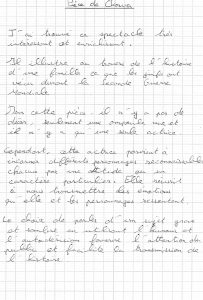 Pièce de Clown
J'ai trouvé ce spectacle très
intéressant et enrichissant.
Il illustre au travers de l'histoire
d'une famille ce que les juifs ont
vécu durant la seconde Guerre
Mondiale.
Dans cette pièce il n'y a pas de
décor, seulement une musique et
il n'y a qu'une seule actrice.
Cependant, cette actrice parvient à
incarner différents personnages reconnaissables
chacun par une attitude ou un
caractère particulier. Elle réussit
à nous transmettre des émotions
qu'elle et les personnages ressentent.
Le choix de parler d'un sujet grave
et sombre en utilisant l'humour et
l'autodérision favorise l'attention du
public et facilite la transmission de
l'histoire.